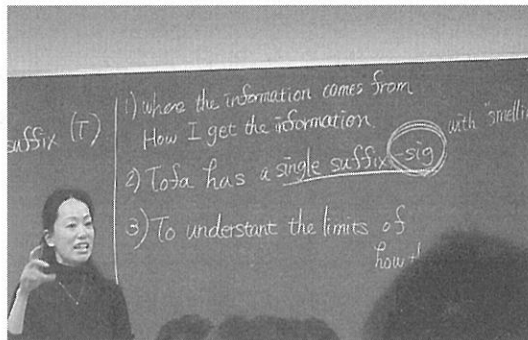 suffix (T)
1) where the information comes from
How I get the information
2) Tofa has a single suffix -sig
with "smelli
3) To understant the limits of
how